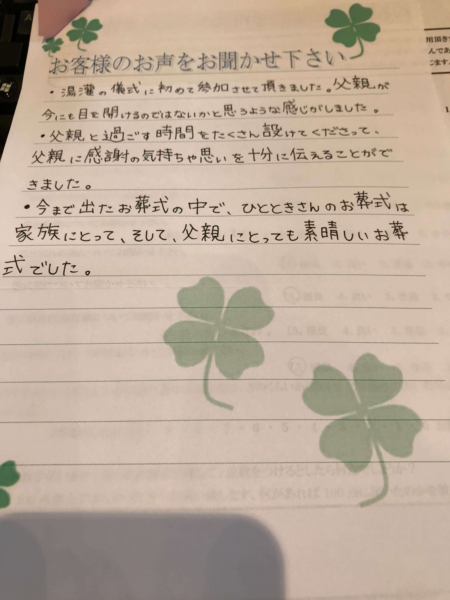 お客様のお声をお聞かせ下さい
・湯灌の儀式に初めて参加させて頂きました。父親が
今にも目を開けるのではないかと思うような感じがしました。
・父親と過ごす時間をたくさん設けてくださって、
父親に感謝の気持ちや思いを十分に伝えることがで
きました。
・今まで出たお葬式の中で、ひとときさんのお葬式は
家族にとって、そして、父親にとっても素晴しいお葬
式でした。